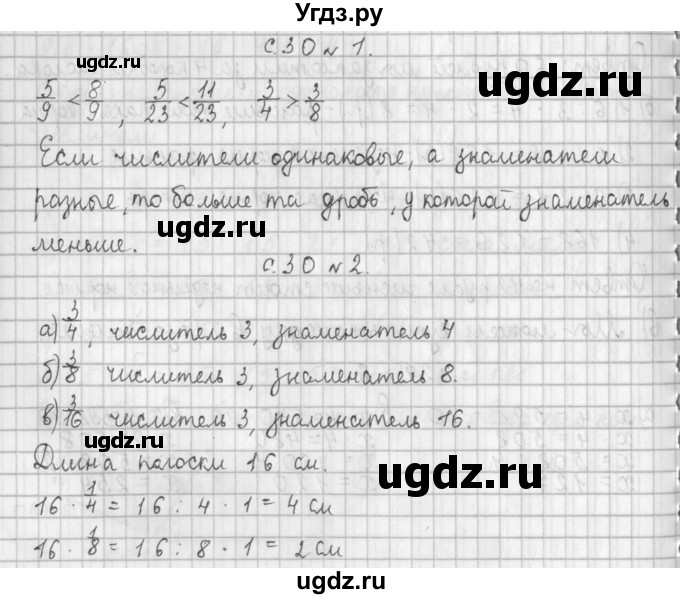 Угдз.ру
с.30 № 1.
5/9 < 8/9, 5/23 < 11/23, 3/4 > 3/8
Если числители одинаковые, а знаменатели
разные, то больше та дробь, у которой знаменатель
ugdz.ru ugdz.ru
меньше.
с.30 № 2.
а) 3/4, числитель 3, знаменатель 4
б) 3/8 числитель 3, знаменатель 8.
в) 3/16 числитель 3, знаменатель 16.
ugdz.ru ugdz.ru
Длина полоски 16 см.
16 · 1/4 = 16 : 4 · 1 = 4 см
16 · 1/8 = 16 : 8 · 1 = 2 см
ugdz.ru